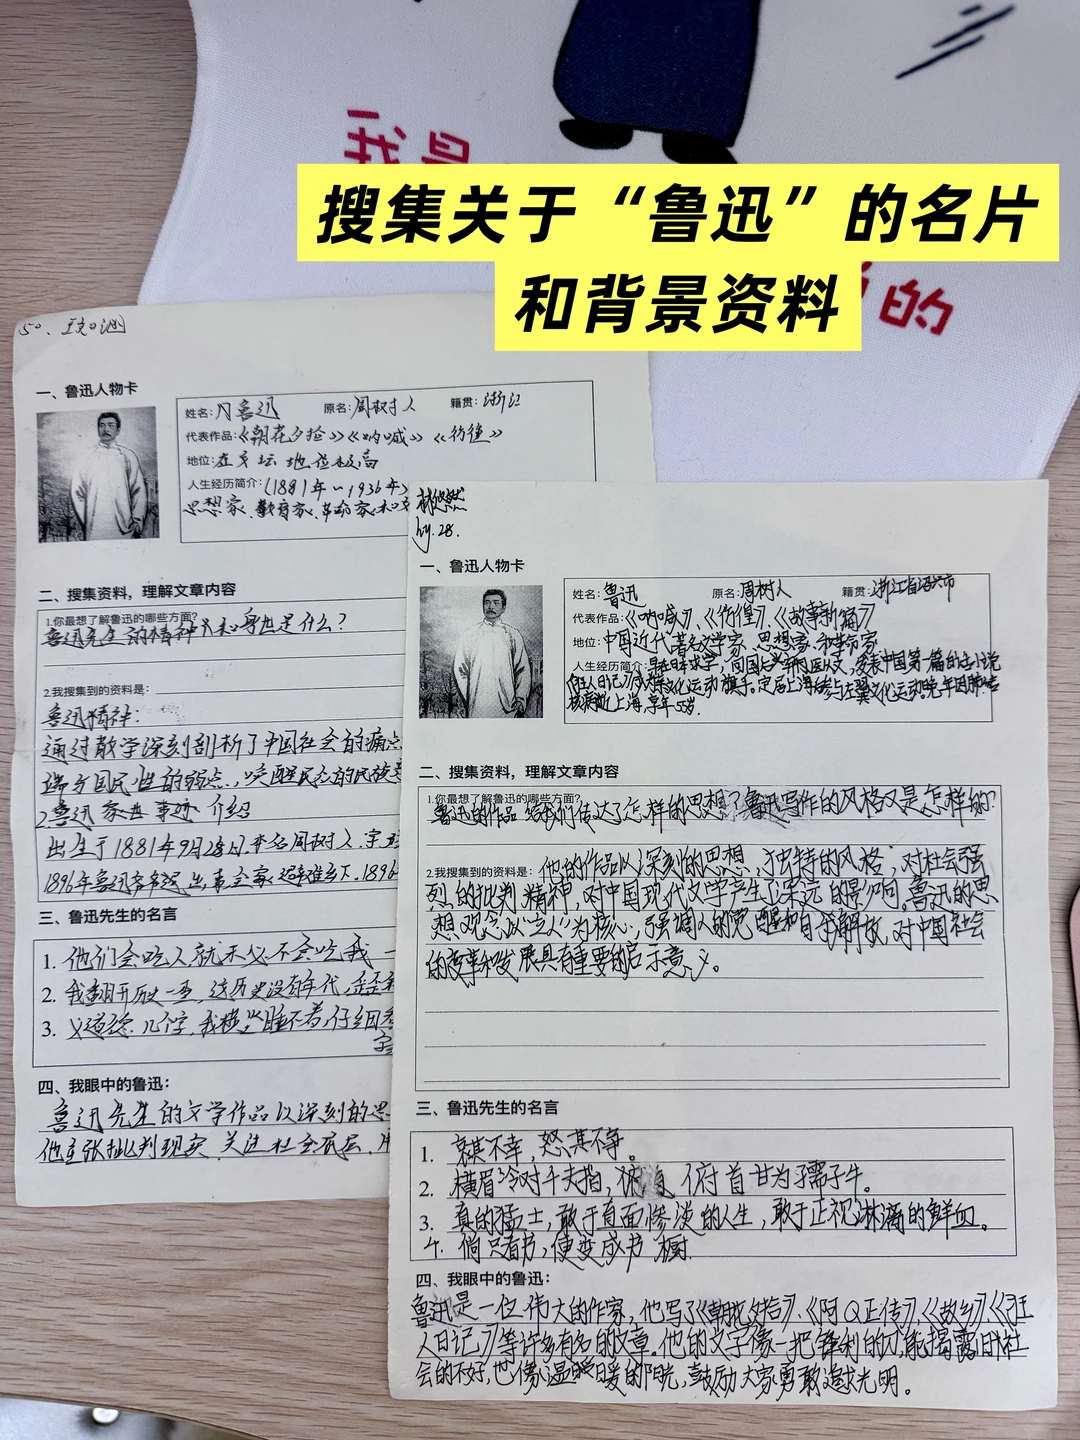 我是
的
搜集关于“鲁迅”的名片
和背景资料
50、
一、鲁迅人物卡
姓名: 鲁迅 原名: 周树人 籍贯: 浙江
代表作品:《朝花夕拾》《呐喊》《彷徨》
地位: 在文坛地位极高
人生经历简介: (1881年~1936年)
思想家、教育家、革命家
二、搜集资料，理解文章内容
1.你最想了解鲁迅的哪些方面?
鲁迅先生的精神和身世是什么?
2.我搜集到的资料是:
鲁迅精神:
通过散学深刻剖析了中国社会的痛点
国民性的弱点、唤醒民众的民族
2.鲁迅家世事迹介绍
出生于1881年9月25日.本名周树人.字
1896年鲁迅
三、鲁迅先生的名言
1. 他们会吃人就未必不会吃我 一
2. 我翻开历史一查，这历史没有年代，歪歪
3. 义道德几个字，我横竖睡不着，仔细
字
四、我眼中的鲁迅:
鲁迅先生的文学作品以深刻的思
他主张批判现实 关注社会底层、用
林悠然
hy.28.
一、鲁迅人物卡
姓名: 鲁迅 原名: 周树人 籍贯: 浙江省绍兴市
代表作品:《呐喊》、《彷徨》、《故事新编》
地位: 中国近代著名文学家、思想家、和革命家
人生经历简介: 早在日本求学，回国后弃医从文，发表中国第一篇白话小说
《狂人日记》成为文化运动旗手。定居上海参与左翼文化运动晚年因肺结
核病逝上海，享年55岁.
二、搜集资料，理解文章内容
1.你最想了解鲁迅的哪些方面?
鲁迅的作品给我们传达了怎样的思想?鲁迅写作的风格又是怎样的?
2.我搜集到的资料是: 他的作品以深刻的思想，独特的风格；对社会强
烈的批判精神，对中国现代文学产生了深远的影响。鲁迅的思
想观念以“立人”为核心，强调人的觉醒和自我解放，对中国社会
的变革和发展具有重要的启示意义。
三、鲁迅先生的名言
1. 哀其不幸，怒其不争。
2. 横眉冷对千夫指，俯首甘为孺子牛。
3. 真的猛士，敢于直面惨淡的人生，敢于正视淋漓的鲜血。
4. 倘只看书，便变成书橱.
四、我眼中的鲁迅:
鲁迅是一位伟大的作家，他写了《朝花夕拾》、《阿Q正传》、《故乡》、《狂
人日记》等许多有名的文章。他的文字像一把锋利的刀，能揭露旧社
会的不好，也像温暖的阳光，鼓励大家勇敢追求光明。